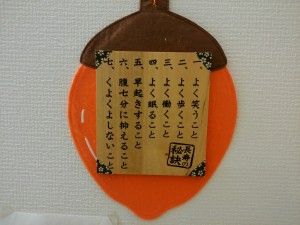 一、よく笑うこと
二、よく歩くこと
三、よく働くこと
四、よく眠ること
五、早起きすること
六、腹七分に抑えること
七、くよくよしないこと
長寿の
秘訣